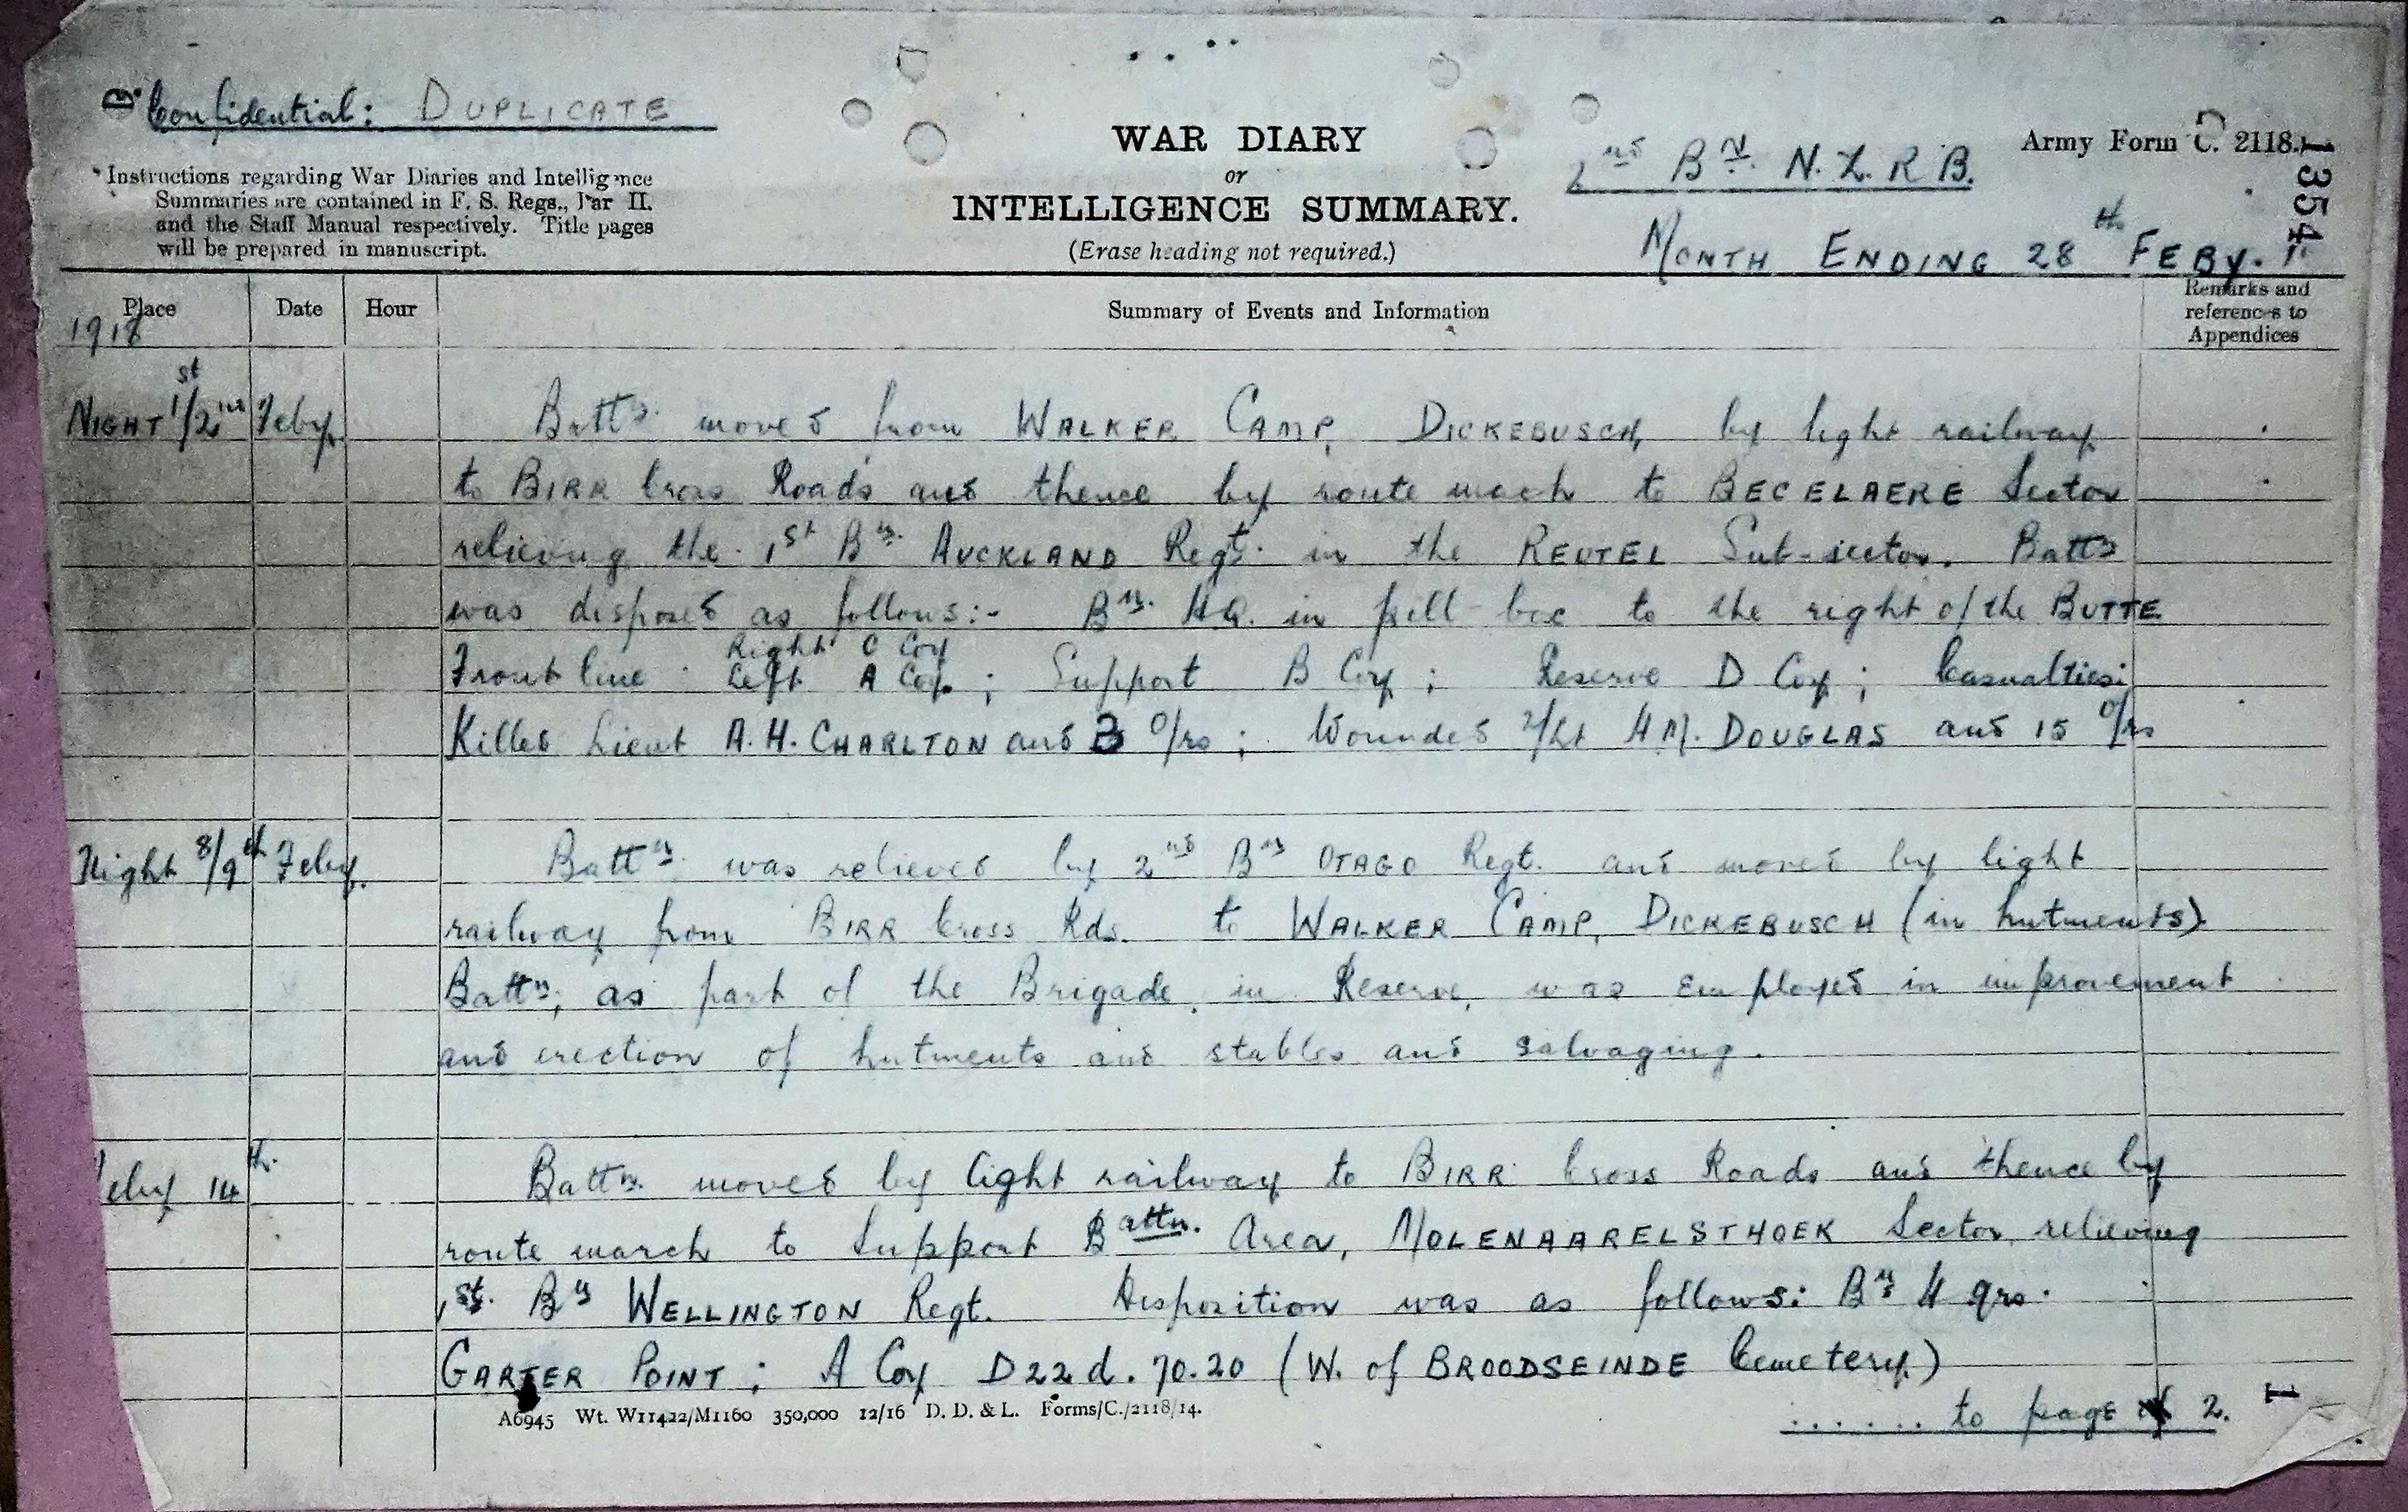 Confidential: DUPLICATE
Instructions regarding War Diaries and Intelligence
Summaries are contained in F. S. Regs., Par II.
and the Staff Manual respectively. Title pages
will be prepared in manuscript.
WAR DIARY
or
INTELLIGENCE SUMMARY.
(Erase heading not required.)
2nd Bn. N.Z.R.B.
Army Form C. 2118.
1354
MONTH ENDING 28th FEBY.
Place Date Hour Summary of Events and Information Remarks and references to Appendices
1918
NIGHT 1st/2nd Feby. Battn. moved from WALKER CAMP, DICKEBUSCH, by light railway
to BIRR Cross Roads and thence by route mach to BECELAERE Sector
relieving the 1st Bn. AUCKLAND Regt. in the REUTEL Sub-sector. Battn
was disposed as follows:- Bn. HQ. in pill box to the right of the BUTTE
Front line Right C Coy
Left A Coy. ; Support B Coy ; Reserve D Coy ; Casualties:
Killed Lieut A.H. CHARLTON and 3 O/rs ; Wounded 2/Lt H.M. DOUGLAS and 15 O/rs
Night 8/9th Feby. Battn. was relieved by 2nd Bn OTAGO Regt. and moved by light
railway from BIRR Cross Rds. to WALKER CAMP, DICKEBUSCH (in hutments).
Battn, as part of the Brigade in Reserve, was employed in improvement
and erection of hutments and stables and salvaging.
Feby 14th. Battn. moved by light railway to BIRR Cross Roads and thence by
route march to Support Battn. Area, MOLENAARELSTHOEK Sector, relieving
1st. Bn WELLINGTON Regt. Disposition was as follows: Bn Hqrs.
GARTER POINT ; A Coy D22d.70.20 (W. of BROODSEINDE Cemetery)
A6945 Wt. W11422/M1160 350,000 12/16 D. D. & L. Forms/C./2118/14.
...... to page 2.
1